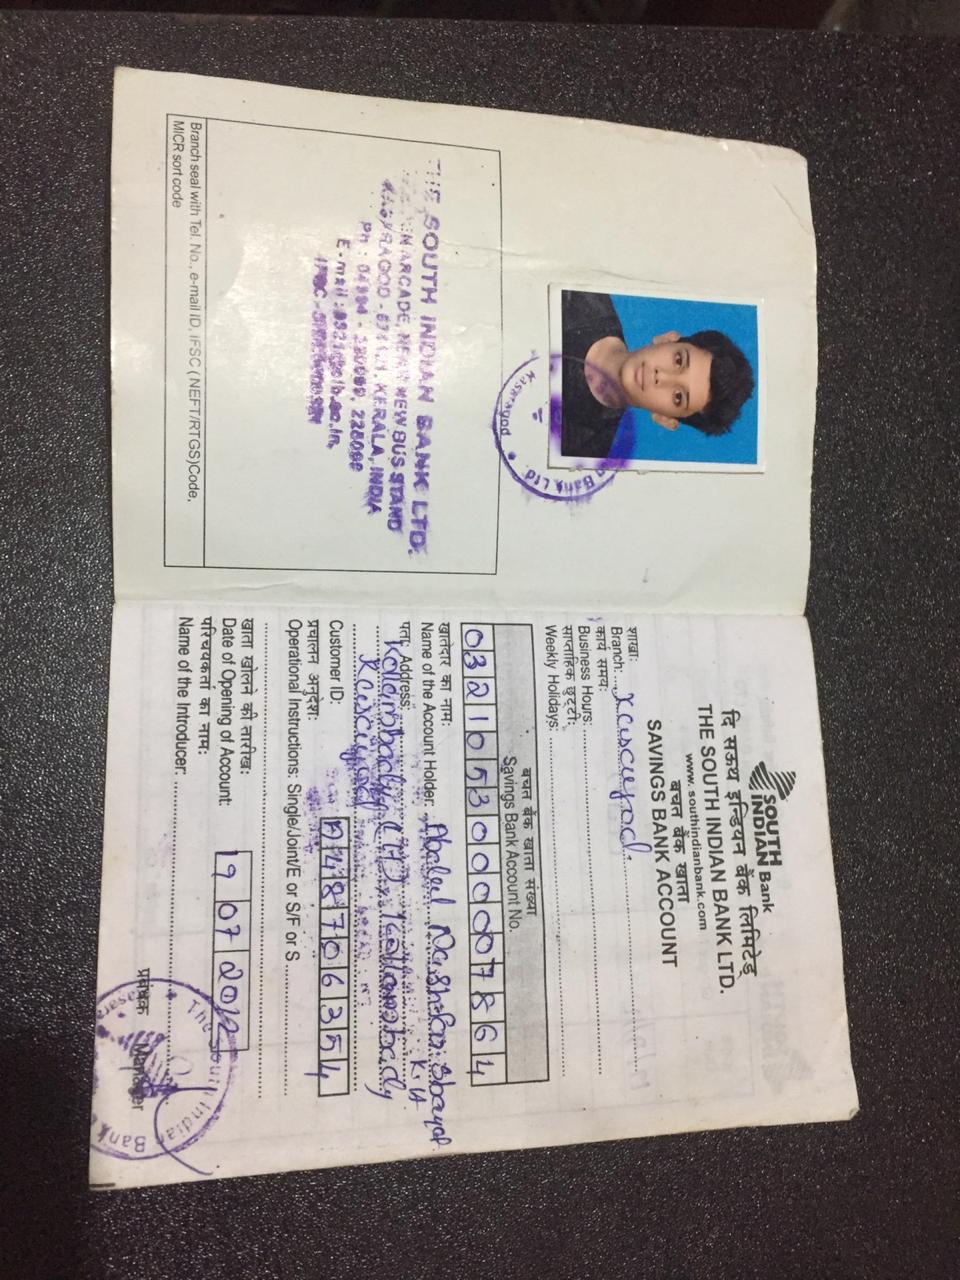 THE SOUTH INDIAN BANK LTD.
ARCADE, NEW BUS STAND
KERALA, INDIA
Ph : 04994 -
E-mail :
IFSC -
Branch seal with Tel. No., e-mail ID, IFSC ( NEFT/RTGS)Code,
MICR sort code
Bank Ltd.
Kasaragod
SOUTH
INDIAN Bank
दि सऊथ इन्डियन बैंक लिमिटेड
THE SOUTH INDIAN BANK LTD.
www.southindianbank.com
बचत बैंक खाता
SAVINGS BANK ACCOUNT
शाखा:
Branch: Kasaragod.
कार्य समय:
Business Hours:
साप्ताहिक छुट्टी:
Weekly Holidays:
बचत बैंक खाता संख्या
Savings Bank Account No.
0321053000007864
खातेदार का नाम:
Name of the Account Holder: Abdul
पता: Address:
Kasaragod
Customer ID: A48706354
प्रचालन अनुदेश:
Operational Instructions: Single/Joint/E or S/F or S
खाता खोलने की तारीख:
Date of Opening of Account: 19 07 2012
परिचयकर्ता का नाम:
Name of the Introducer:
प्रबंधक Manager
The South Indian Bank